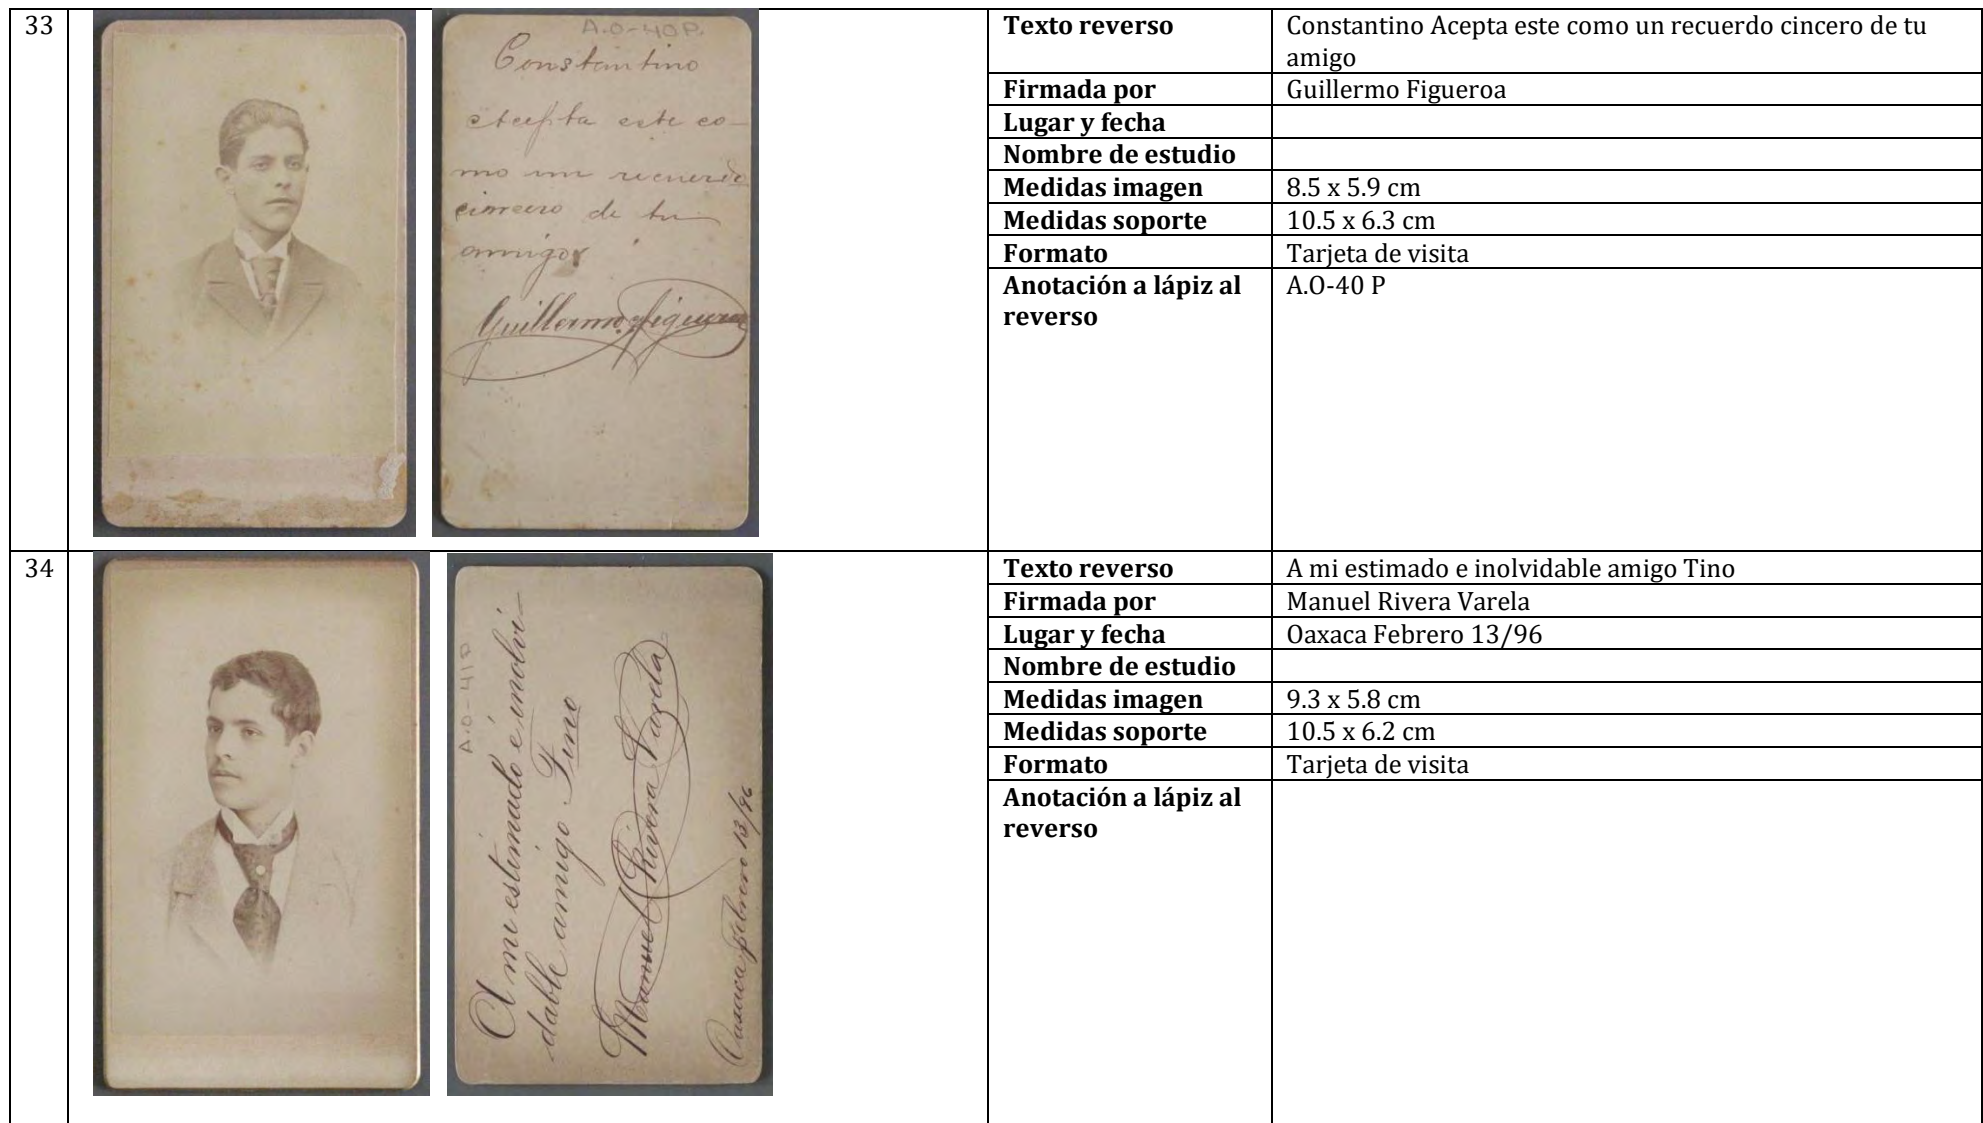 33
A.O-40P.
Constantino
Acepta este co-
mo un recuerdo
cincero de tu
amigo
Guillermo Figueroa
Texto reverso
Constantino Acepta este como un recuerdo cincero de tu
amigo
Firmada por
Guillermo Figueroa
Lugar y fecha
Nombre de estudio
Medidas imagen
8.5 x 5.9 cm
Medidas soporte
10.5 x 6.3 cm
Formato
Tarjeta de visita
Anotación a lápiz al
reverso
A.O-40 P
34
A.O-41P
A mi estimado é inolvi-
dable amigo Tino
Manuel Rivera Varela
Oaxaca Febrero 13/96
Texto reverso
A mi estimado e inolvidable amigo Tino
Firmada por
Manuel Rivera Varela
Lugar y fecha
Oaxaca Febrero 13/96
Nombre de estudio
Medidas imagen
9.3 x 5.8 cm
Medidas soporte
10.5 x 6.2 cm
Formato
Tarjeta de visita
Anotación a lápiz al
reverso